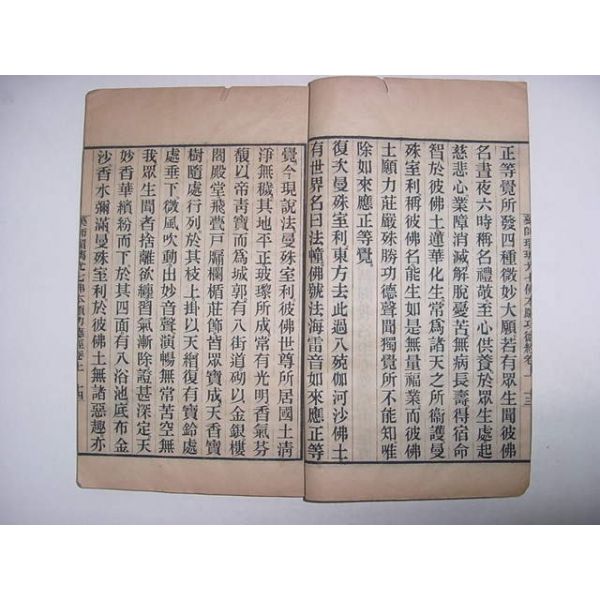 藥師琉璃光七佛本願功德經卷上 十三
正等覺所發四種微妙大願若有眾生聞彼佛
名晝夜六時稱名禮敬至心供養於眾生處起
慈悲心業障消滅解脫憂苦無病長壽得宿命
智於彼佛土蓮華化生常爲諸天之所衛護曼
殊室利稱彼佛名能生如是無量福業而彼佛
土願力莊嚴殊勝功德聲聞獨覺所不能知唯
除如來應正等覺
復次曼殊室利東方去此過八殑伽河沙佛土
有世界名曰法幢佛號法海雷音如來應正等
覺今現說法曼殊室利彼佛世尊所居國土清
淨無穢其地平正玻瓈所成常有光明香氣芬
馥以帝青寶而爲城郭有八街道砌以金銀樓
閣殿堂飛甍戶牖欄楯莊飾皆眾寶成天香寶
樹隨處行列於其枝上掛以天繒復有寶鈴處
處垂下微風吹動出妙音聲演暢無常苦空無
我眾生聞者捨離欲纏習氣漸除證甚深定天
妙香華繽紛而下於其四面有八浴池底布金
沙香水彌滿曼殊室利於彼佛土無諸惡趣亦
藥師琉璃光七佛本願功德經卷上 十四